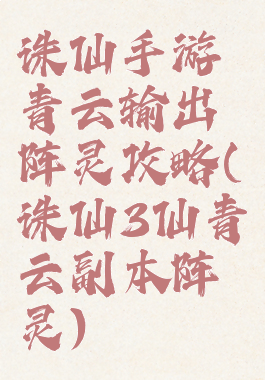 诛仙手游
青云输出
阵灵攻略(
诛仙3仙青
云副本阵
灵)